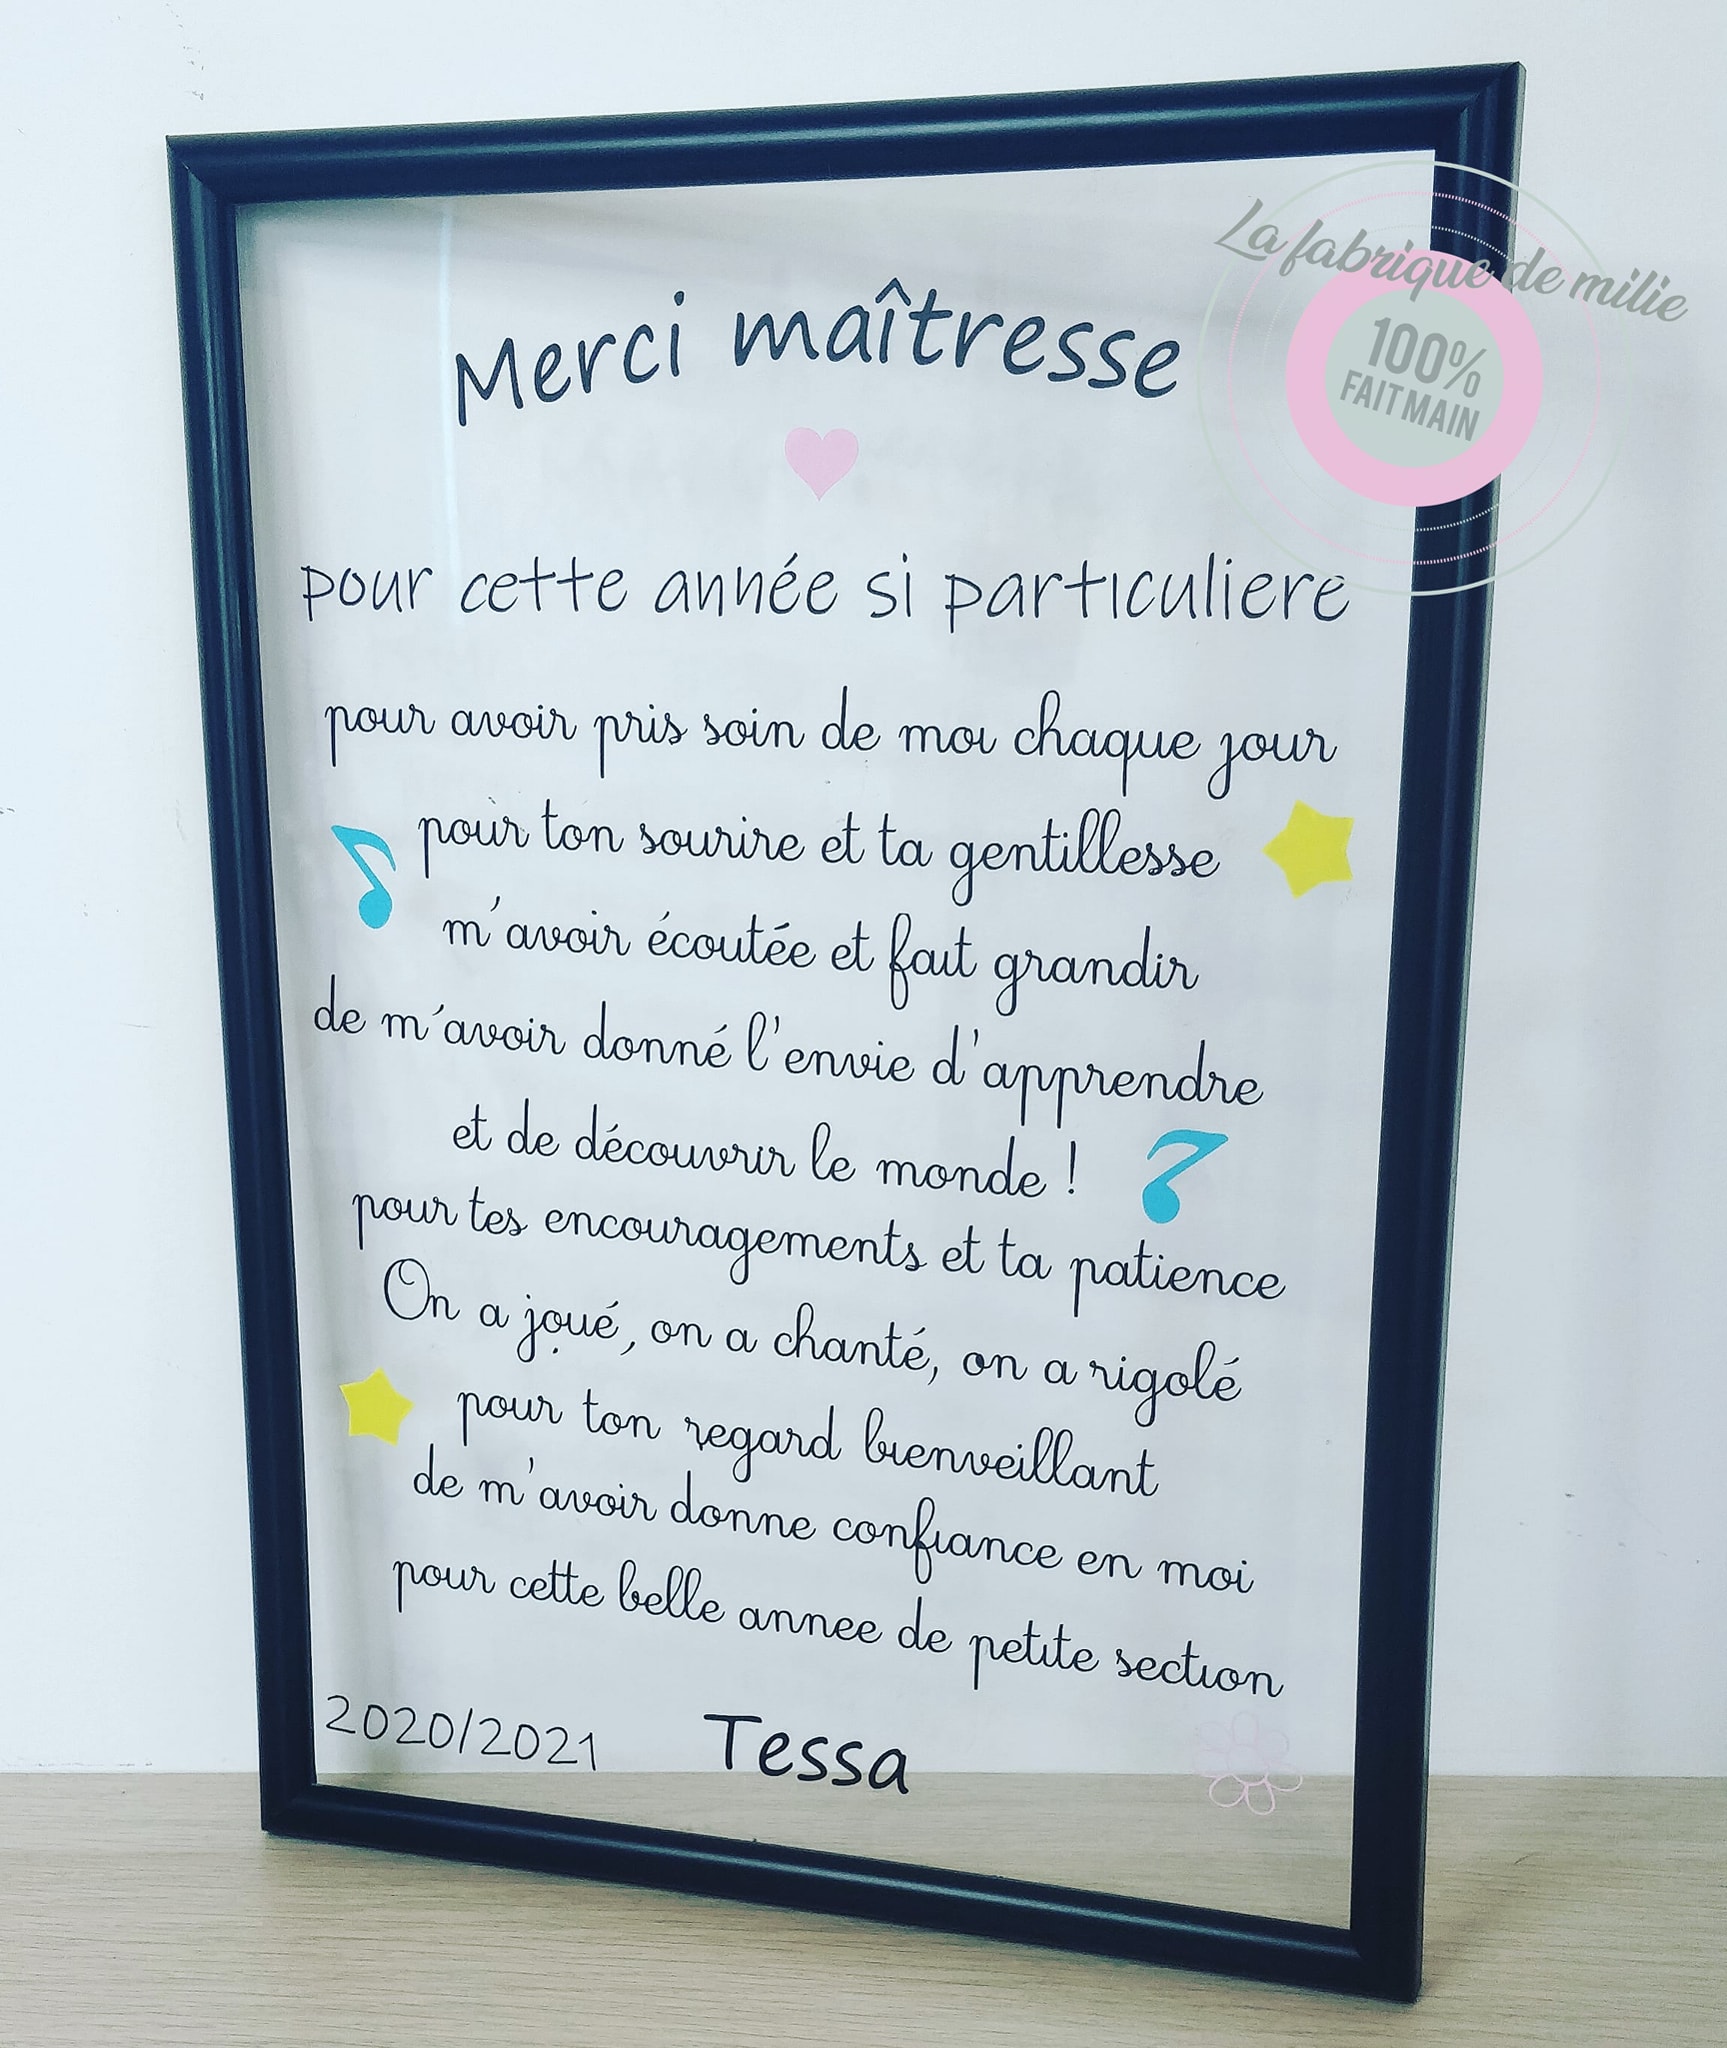 La fabrique de milie
100%
FAIT MAIN
Merci maîtresse
pour cette année si particuliere
pour avoir pris soin de moi chaque jour
pour ton sourire et ta gentillesse
m'avoir écoutée et fait grandir
de m'avoir donné l'envie d'apprendre
et de découvrir le monde !
pour tes encouragements et ta patience
On a joué, on a chanté, on a rigolé
pour ton regard bienveillant
de m'avoir donne confiance en moi
pour cette belle annee de petite section
2020/2021 Tessa